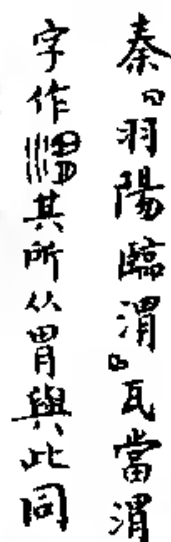 秦「羽陽臨渭」瓦當渭
字作其所从胃與此同